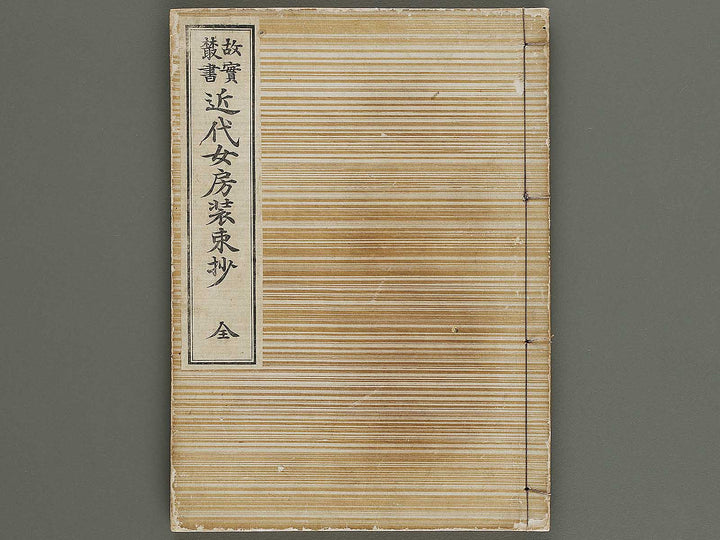 故實
叢書
近代女房装束抄
全